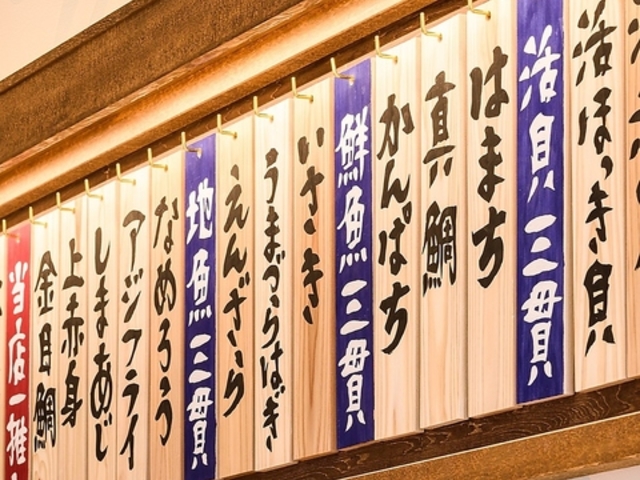 活ほっき貝
活貝三貫
はまち
真鯛
かんぱち
鮮魚三貫
いさき
うまづらはぎ
えんざら
地魚三貫
なめろう
アジフライ
しまあじ
上赤身
金目鯛
当店一推